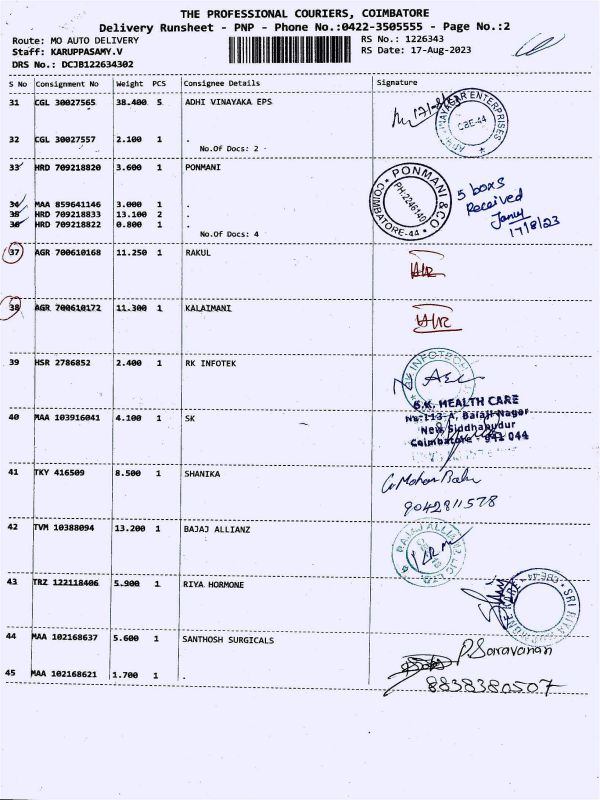 THE PROFESSIONAL COURIERS, COIMBATORE
Delivery Runsheet - PNP - Phone No.:0422-3505555 - Page No.:2
Route: MO AUTO DELIVERY RS No.: 1226343
Staff: KARUPPASAMY.V RS Date: 17-Aug-2023
DRS No.: DCJB122634302
S No Consignment No Weight PCS Consignee Details Signature
31 CGL 30027565 38.400 5 ADHI VINAYAKA EPS
17/8/23
CBE-44
32 CGL 30027557 2.100 1 .
No.Of Docs: 2
33 HRD 709218820 3.600 1 PONMANI
PONMANI & CO
PH:2246140
COIMBATORE-44
5 boxs
Received
17/8/23
34 MAA 859641146 3.000 1 .
35 HRD 709218833 13.100 2 .
36 HRD 709218822 0.800 1 .
No.Of Docs: 4
37 AGR 700610168 11.250 1 RAKUL
38 AGR 700610172 11.300 1 KALAIMANI
39 HSR 2786852 2.400 1 RK INFOTEK
S.K. HEALTH CARE
No:113-A, Balaji Nagar
New Siddhapudur
Coimbatore - 641 044
40 MAA 103916041 4.100 1 SK
41 TKY 416509 8.500 1 SHANIKA
9042811578
42 TVM 10388094 13.200 1 BAJAJ ALLIANZ
BAJAJ ALLIANZ
43 TRZ 122118406 5.900 1 RIYA HORMONE
CBE-44
44 MAA 102168637 5.600 1 SANTHOSH SURGICALS
P. Saravanan
8838380507
45 MAA 102168621 1.700 1 .